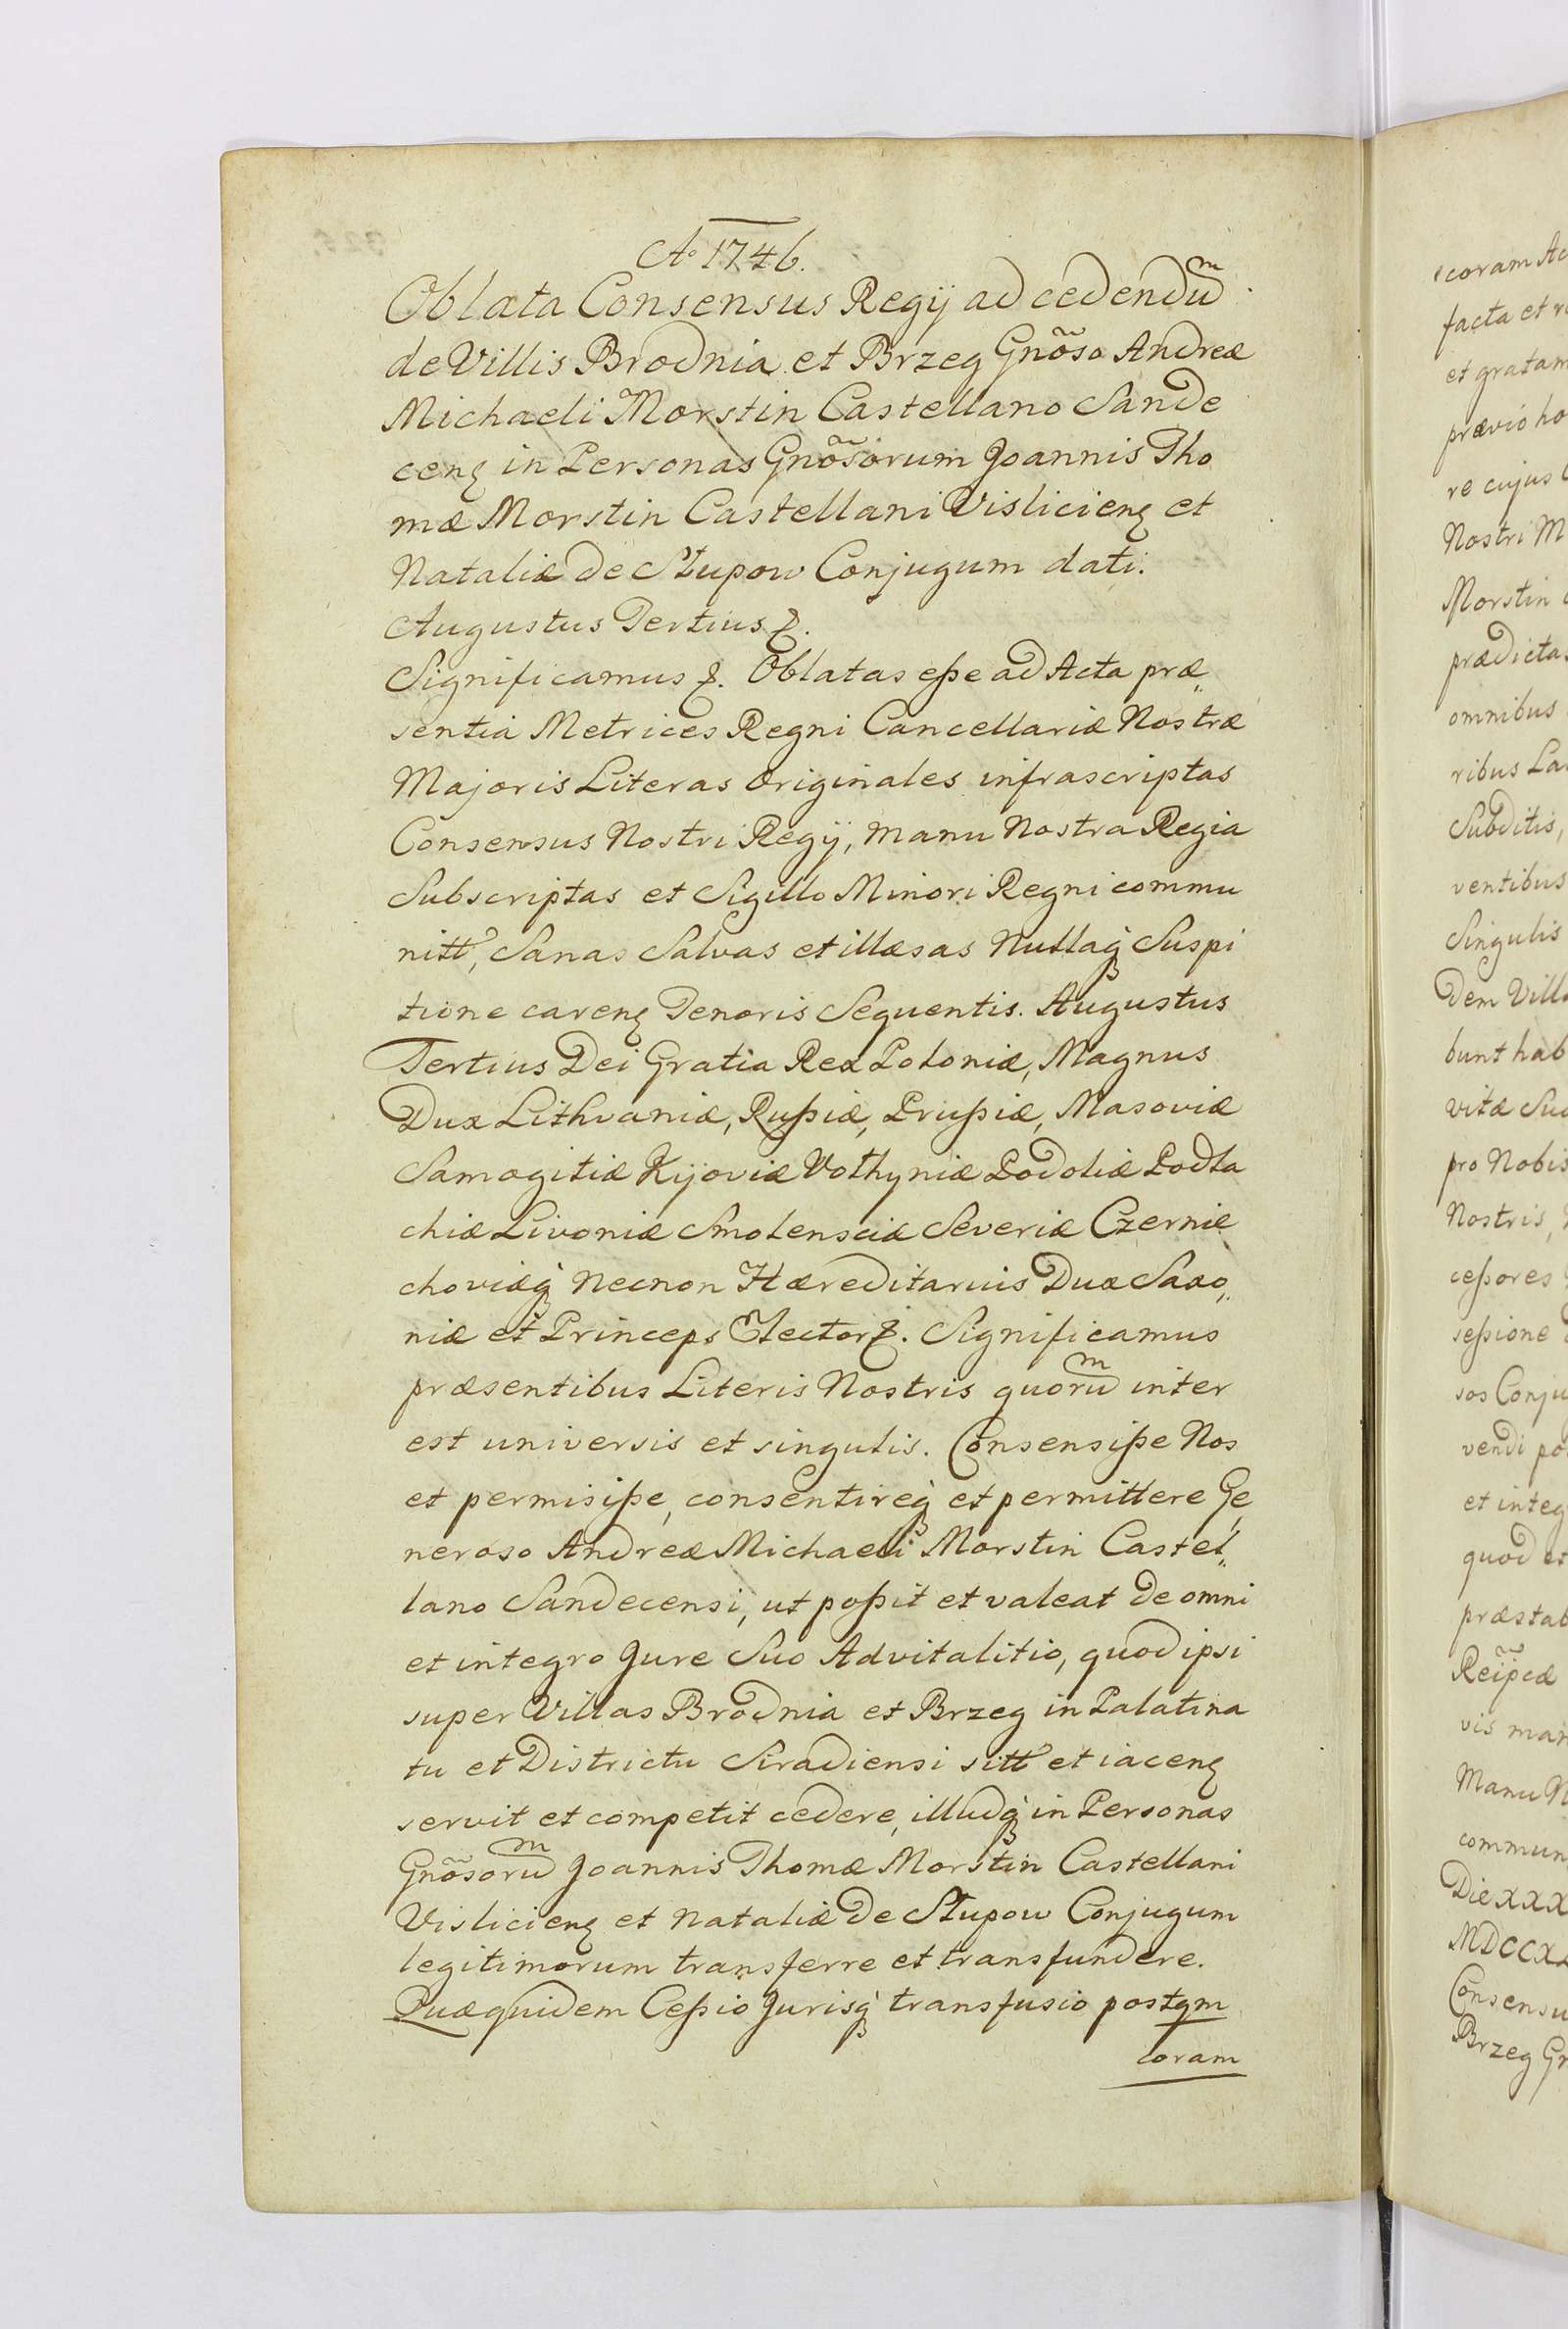 Ao 1746.
Oblata Consensus Regij ad cedendũm
de Villis Brodnia et Brzeg Gnõso Andreæ
Michaeli Morstin Castellano Sande
cenę in Personas Gnõsorum Joannis Tho
mæ Morstin Castellani Vislicienę et
Nataliæ de Słupow Conjugum dati.
Augustus Tertius &.
Significamus &. Oblatas eße ad Acta præ„
sentia Metrices Regni Cancellariæ Nostræ
Majoris Literas Originales infrascriptas
Consensus Nostri Regij, manu Nostra Regia
Subscriptas et Sigillo Minori Regni commu
nitt, Sanas Salvas et illæsas Nullaq Suspi
tione carenę Tenoris Sequentis. Augustus
Tertius Dei Gratia Rex Poloniæ, Magnus
Dux Lithvaniæ, Rußiæ, Prußiæ, Masoviæ
Samogitiæ Kijoviæ Volhyniæ Podoliæ Podla
chiæ Livoniæ Smolensciæ Severiæ Czernie
choviæq Necnon Hæreditarius Dux Saxo„
niæ et Princeps Elector &. Significamus
præsentibus Literis Nostris quorum inter
est universis et singulis. Consensiße Nos
et permisiße, consentireq et permittere Ge
neroso Andreæ Michaeli Morstin Castel„
lano Sandecensi, ut poßit et valeat de omni
et integro Jure Suo Advitalitio, quod ipsi
super Villas Brodnia et Brzeg in Palatina
tu et Districtu Siradiensi sitt et iacenę
servit et competit cedere, illudq in Personas
Gnõsorum Joannis Thomæ Morstin Castellani
Vislicienę et Nataliæ de Słupow Conjugum
legitimorum transferre et transfundere.
Quæquidem Ceßio Jurisq transfusio postqm
coram
coram Ac
facta et r
et gratam
prævio ho
re cujus
Nostri M
Morstin
prædicta
omnibus
ribus La
Subditis,
ventibus
Singulis
dem Vill
bunt hab
vitæ Su
pro Nobis
Nostris,
ceßores
seßione
sos Conju
vendi po
et integ
quod et
præstab
Reipcæ
vis man
Manu N
commun
Die XXX
MDCCX
Consensu
Brzeg Gn